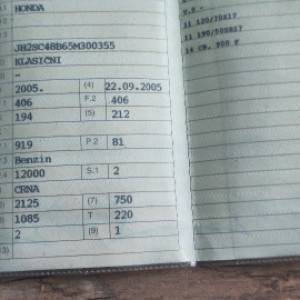 HONDA
JH2SC48B65M300355
KLASIČNI
-
2005. (4) 22.09.2005
406 F.2 406
194 (5) 212
919 P.2 81
Benzin
12000 S.1 2
CRNA
2125 (7) 750
1085 T 220
2 (9) 1
11 120/70X17
11 190/50X817